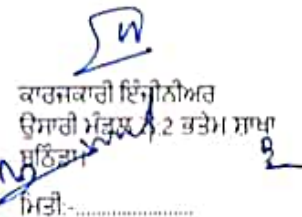 ਕਾਰਜਕਾਰੀ ਇੰਜੀਨੀਅਰ
ਉਸਾਰੀ ਮੰਡਲ ਨੰ.2 ਭਤੇਮ ਸ਼ਾਖਾ
ਬਠਿੰਡਾ।
ਮਿਤੀ:-......................